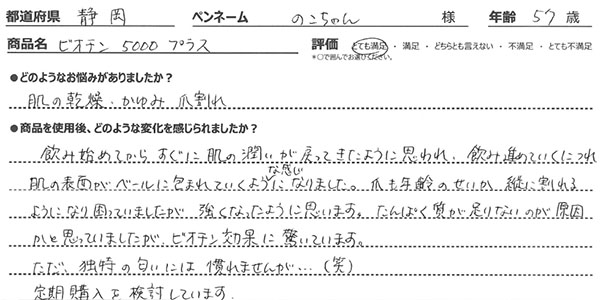 都道府県 静岡 ペンネーム のこちゃん 様 年齢 57 歳
商品名 ビオチン 5000 プラス 評価 とても満足 ・ 満足 ・ どちらとも言えない ・ 不満足 ・ とても不満足
*○で囲んでお選びください。
●どのようなお悩みがありましたか？
肌の乾燥・かゆみ 爪割れ
●商品を使用後、どのような変化を感じられましたか？
飲み始めてからすぐに肌の潤いが戻ってきたように思われ、飲み進めていくにつれ
肌の表面がベールに包まれていくような感じになりました。爪も年齢のせいか縦に割れる
ようになり困っていましたが 強くなったように思います。たんぱく質が足りないのが原因
かと思っていましたが、ビオチン効果に驚いています。
ただ、独特の匂いには慣れませんが…(笑)
定期購入を検討しています。